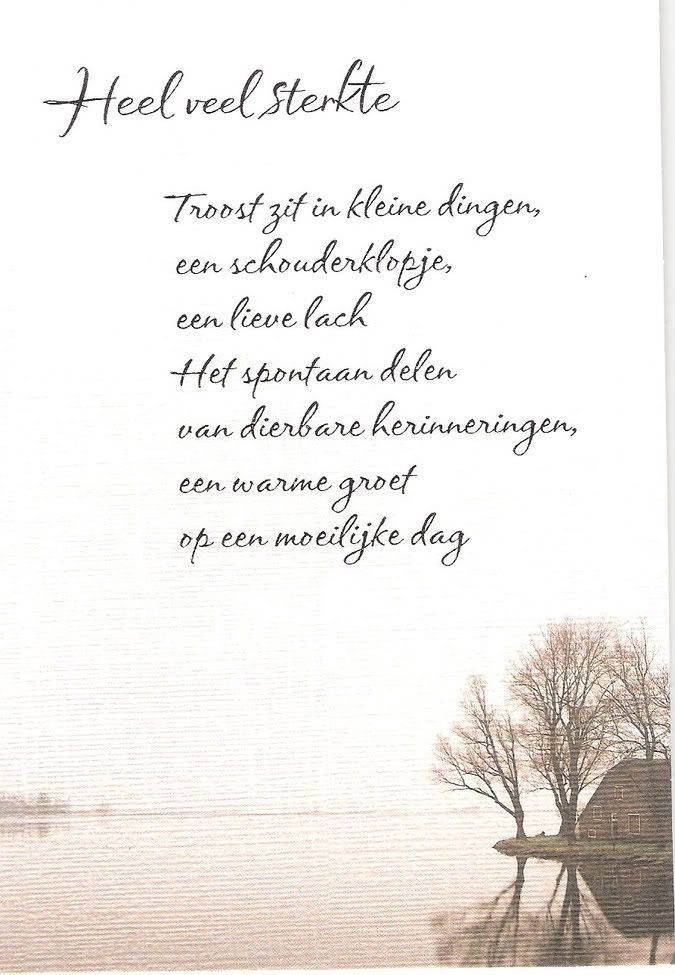 Heel veel sterkte
Troost zit in kleine dingen,
een schouderklopje,
een lieve lach
Het spontaan delen
van dierbare herinneringen,
een warme groet
op een moeilijke dag